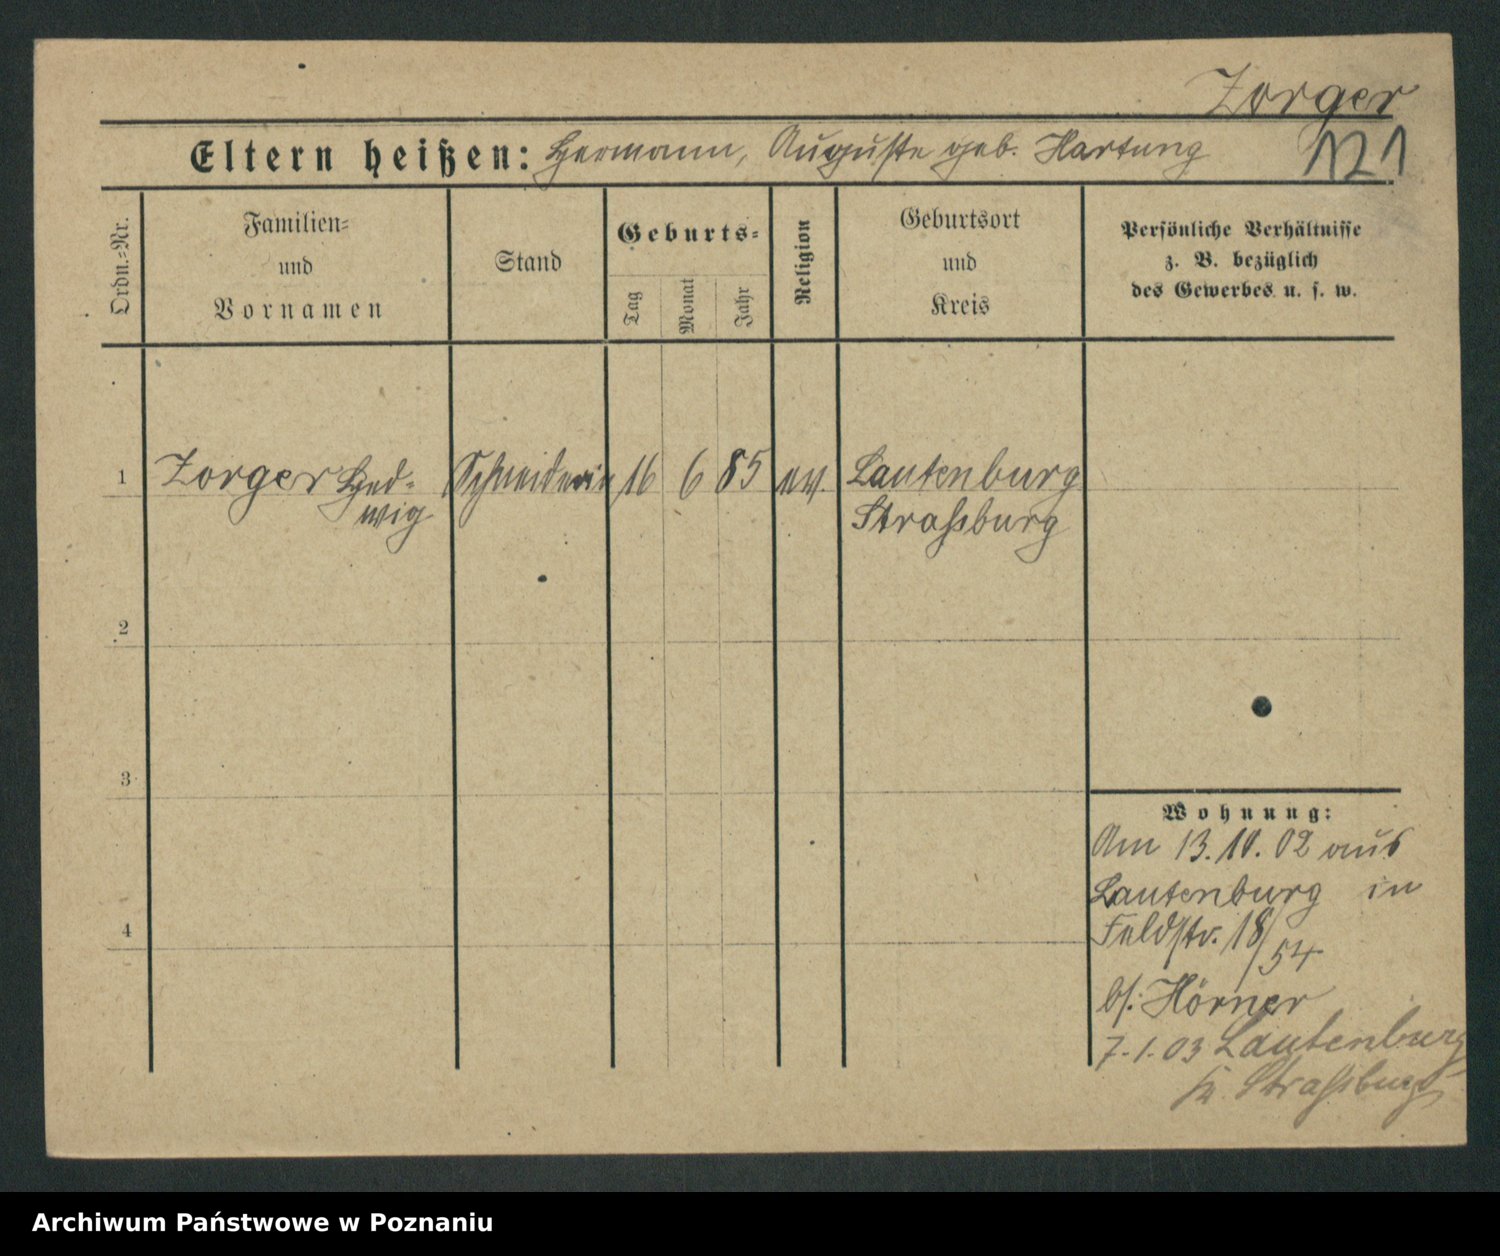 Zorger
Eltern heißen: Hermann, Auguste geb. Hartung
121
Ordn.-Nr.
Familien-
und
Vornamen
Stand
Geburts-
Tag
Monat
Jahr
Religion
Geburtsort
und
Kreis
Persönliche Verhältnisse
z. B. bezüglich
des Gewerbes u. s. w.
1 Zorger Hed-
wig
Schneiderin 16 6 85 ev. Lautenburg
Strasburg
2
3
4
Wohnung:
Am 13.10.02 aus
Lautenburg in
Feldstr. 18/54
bs: Hörner
7.1.03 Lautenburg
Kr. Strasburg
Archiwum Państwowe w Poznaniu